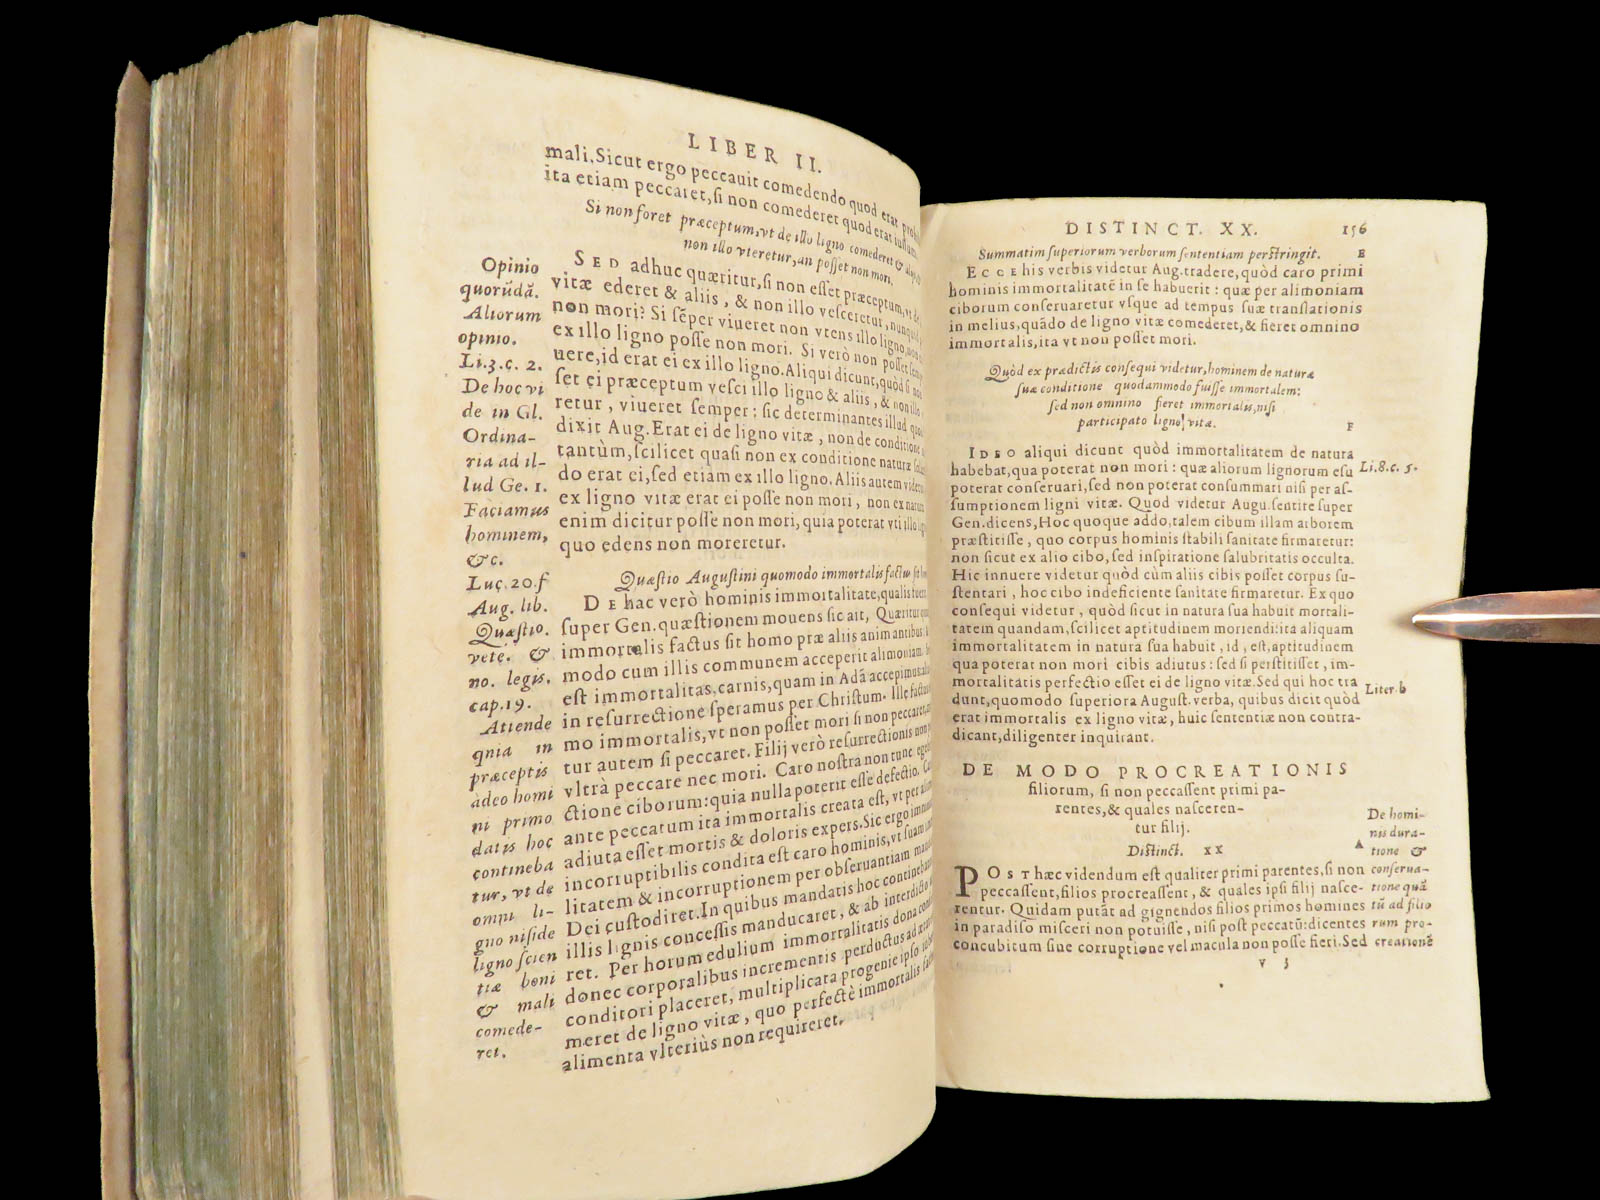 LIBER II.
mali. Sicut ergo peccauit comedendo quod erat
ita etiam peccaret, si non comederet quod erat iussum
Si non foret præceptum, vt de illo ligno comederet &
non illo vteretur, an posset non mori.
SED adhuc quæritur, si non esset præceptum, vt de
vitæ ederet & aliis, & non illo vesceretur,
non mori? Si sẽper viueret non vtens illo ligno,
ex illo ligno posse non mori. Si verò non posset
uere, id erat ei ex illo ligno. Aliqui dicunt, quòd si
set ei præceptum vesci illo ligno & aliis, & non illo
retur, viueret semper: sic determinantes illud
dixit Aug. Erat ei de ligno vitæ, non de conditione
tantùm, scilicet quasi non ex conditione naturæ
do erat ei, sed etiam ex illo ligno. Aliis autem
ex ligno vitæ erat ei posse non mori, non ex
enim dicitur posse non mori, quia poterat vti illo
quo edens non moreretur.
Quæstio Augustini quomodo immortalis factus sit
DE hac verò hominis immortalitate, qualis
super Gen. quæstionem mouens sic ait, Quæritur
immortalis factus sit homo præ aliis animantibus:
modo cum illis communem acceperit alimoniam.
est immortalitas carnis, quam in Adã accepimus:
in resurrectione speramus per Christum. Ille factus
mo immortalis, vt non posset mori si non peccaret,
tur autem si peccaret. Filij verò resurrectionis non
vltrà peccare nec mori. Caro nostra non tunc
ctione ciborum: quia nulla poterit esse defectio.
ante peccatum ita immortalis creata est, vt per
adiuta esset mortis & doloris expers. Sic ergo
incorruptibilis condita est caro hominis, vt suam
litatem & incorruptionem per obseruantiam
Dei custodiret. In quibus mandatis hoc
illis lignis concessis manducaret, & ab interdicto
ret. Per horum edulium immortalitatis dona
donec corporalibus incrementis perductus ad
conditori placeret, multiplicata progenie ipso
meret de ligno vitæ, quo perfectè immortalis
alimenta vlteriùs non requireret.
Opinio
quorũdã.
Aliorum
opinio.
Li.3.c. 2.
De hoc vi
de in Gl.
Ordina-
ria ad il-
lud Ge. 1.
Faciamus
hominem,
&c.
Luc. 20.f
Aug. lib.
Quæstio.
vete. &
no. legis.
cap. 19.
Attende
quia in
præceptis
adeo homi
ni primo
datis hoc
contineba
tur, vt de
omni li-
gno niside
ligno scien
tiæ boni
& mali
comede-
ret.
DISTINCT. XX. 156
Summatim superiorum verborum sententiam perstringit. E
ECCE his verbis videtur Aug. tradere, quòd caro primi
hominis immortalitatẽ in se habuerit: quæ per alimoniam
ciborum conseruaretur vsque ad tempus suæ translationis
in melius, quãdo de ligno vitæ comederet, & fieret omnino
immortalis, ita vt non posset mori.
Quòd ex prædictis consequi videtur, hominem de naturæ
suæ conditione quodammodo fuisse immortalem:
sed non omnino fieret immortalis, nisi
participato ligno vitæ. F
IDEO aliqui dicunt quòd immortalitatem de natura
habebat, qua poterat non mori: quæ aliorum lignorum esu
poterat conseruari, sed non poterat consummari nisi per as-
sumptionem ligni vitæ. Quod videtur Augu. sentire super
Gen. dicens, Hoc quoque addo, talem cibum illam arborem
præstitisse, quo corpus hominis stabili sanitate firmaretur:
non sicut ex alio cibo, sed inspiratione salubritatis occulta.
Hic innuere videtur quòd cùm aliis cibis posset corpus su-
stentari, hoc cibo indeficiente sanitate firmaretur. Ex quo
consequi videtur, quòd sicut in natura sua habuit mortali-
tatem quandam, scilicet aptitudinem moriendi: ita aliquam
immortalitatem in natura sua habuit, id, est, aptitudinem
qua poterat non mori cibis adiutus: sed si perstitisset, im-
mortalitatis perfectio esset ei de ligno vitæ. Sed qui hoc tra
dunt, quomodo superiora August. verba, quibus dicit quòd
erat immortalis ex ligno vitæ, huic sententiæ non contra-
dicant, diligenter inquirant.
Li. 8. c. 5.
Liter. b
DE MODO PROCREATIONIS
filiorum, si non peccassent primi pa-
rentes, & quales nasceren-
tur filij.
Distinct. XX A
POST hæc videndum est qualiter primi parentes, si non
peccassent, filios procreassent, & quales ipsi filij nasce-
rentur. Quidam putãt ad gignendos filios primos homines
in paradiso misceri non potuisse, nisi post peccatũ: dicentes
concubitum siue corruptione vel macula non posse fieri. Sed
De homi-
nis dura-
tione &
conserua-
tione quã
tũ ad filio
rum pro-
creationẽ
v 3